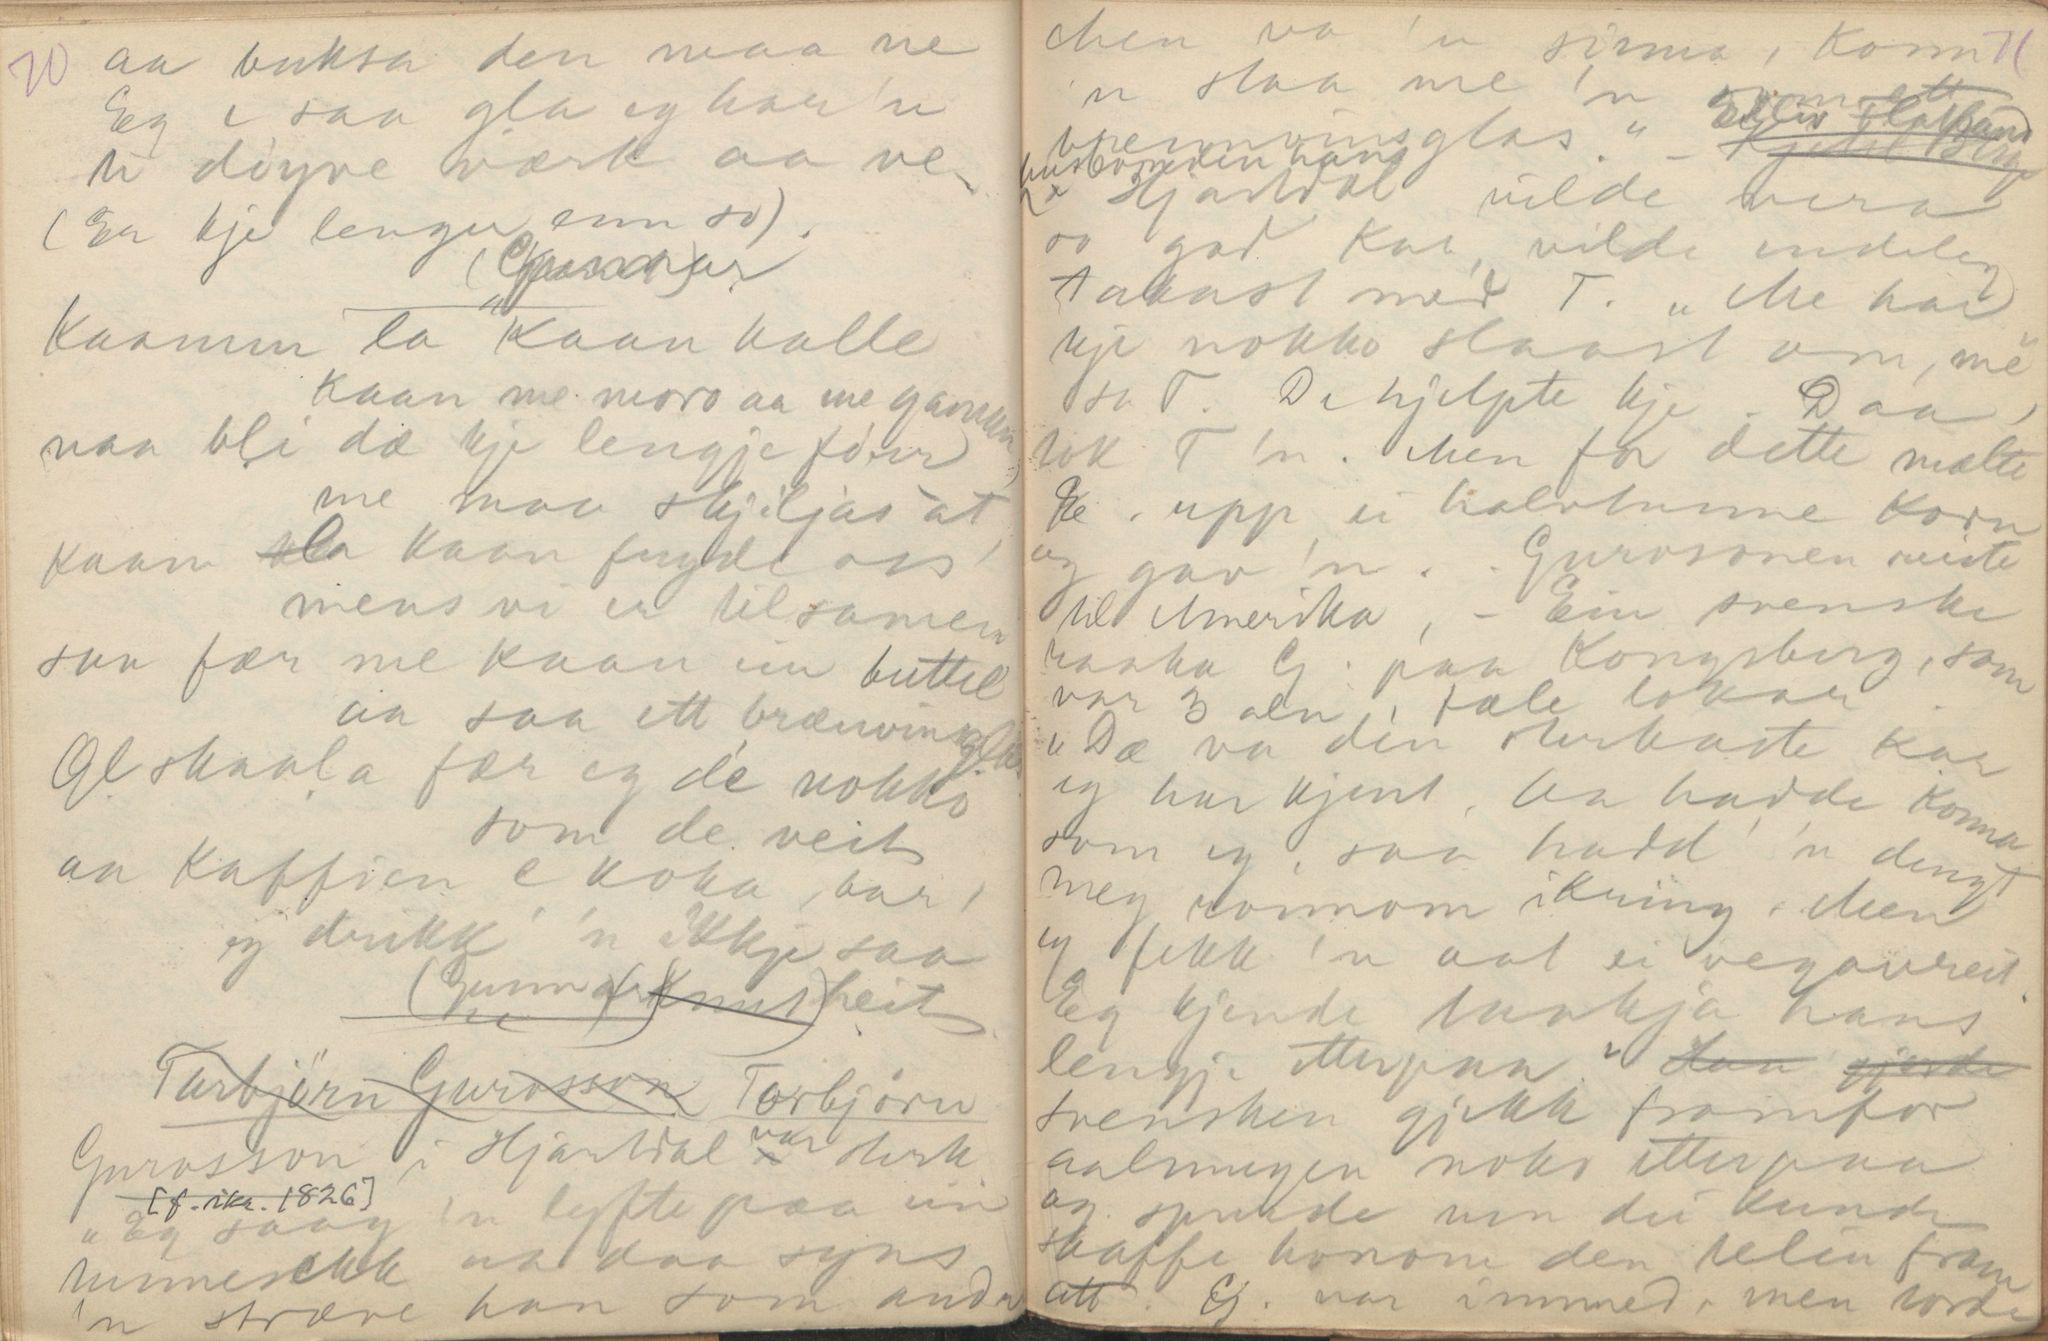 70
aa buksa den maa ne
Eg e saa gla eg har 'n
ti döyve værk aa ve.
(Er kje lenger enn so).
(Gunnar
Kaanum la "Kaan kalle
Kaan me moro aa me gamman,
naa bli dæ kje lengje förr
me maa skjiljas at
kaan la kaan fryde oss
mens vi er tilsamen
saa fær me kaan ein buttel
aa saa ett brænvinsglas
Ql skaala fær eg de nokko
som de veit
aa Kaffien e koka, bær,
eg drikk 'n ikkje saa
heit
(Gunnar Knut)
Tarbjörn Gurosson Torbjörn
Gurosson i Hjartdal var sterk
[f. ikr. 1826]
"Eg saag 'n lyfte paa ein
tunnesekk aa daa syns
'n stræve han som andre
71
Men va 'n sinna, konn
'n slaa me 'n som ett
brennvinsglas." –
Hjartdal vilde vera
so god kar, vilde endeleg
takast med T. "Me har
kje nokko slaast om, me"
sa T. De hjelpte kje. Daa
tok T 'n. Men for dette mælte
upp ei halvtunne korn
og gav 'n. Gurosonen reiste
til Amerika, – Ein svenske
raaka G. paa Kongsberg, som
var 3 aln, fæle lokar.
"Dæ va den sterkaste kar
eg har kjent. Aa hadde konna
som eg, saa hadd 'n dengt
meg rommom ikring. Men
eg fekk 'n aat ei vegavreit.
Eg kjende taakja hans
lengje etterpaa." Han gjorde
svensken gjekk framfor
aalmugen noko etterpaa
og spurde um dei kunde
skaffe honom den telen fram
att. G. var immed, men torde